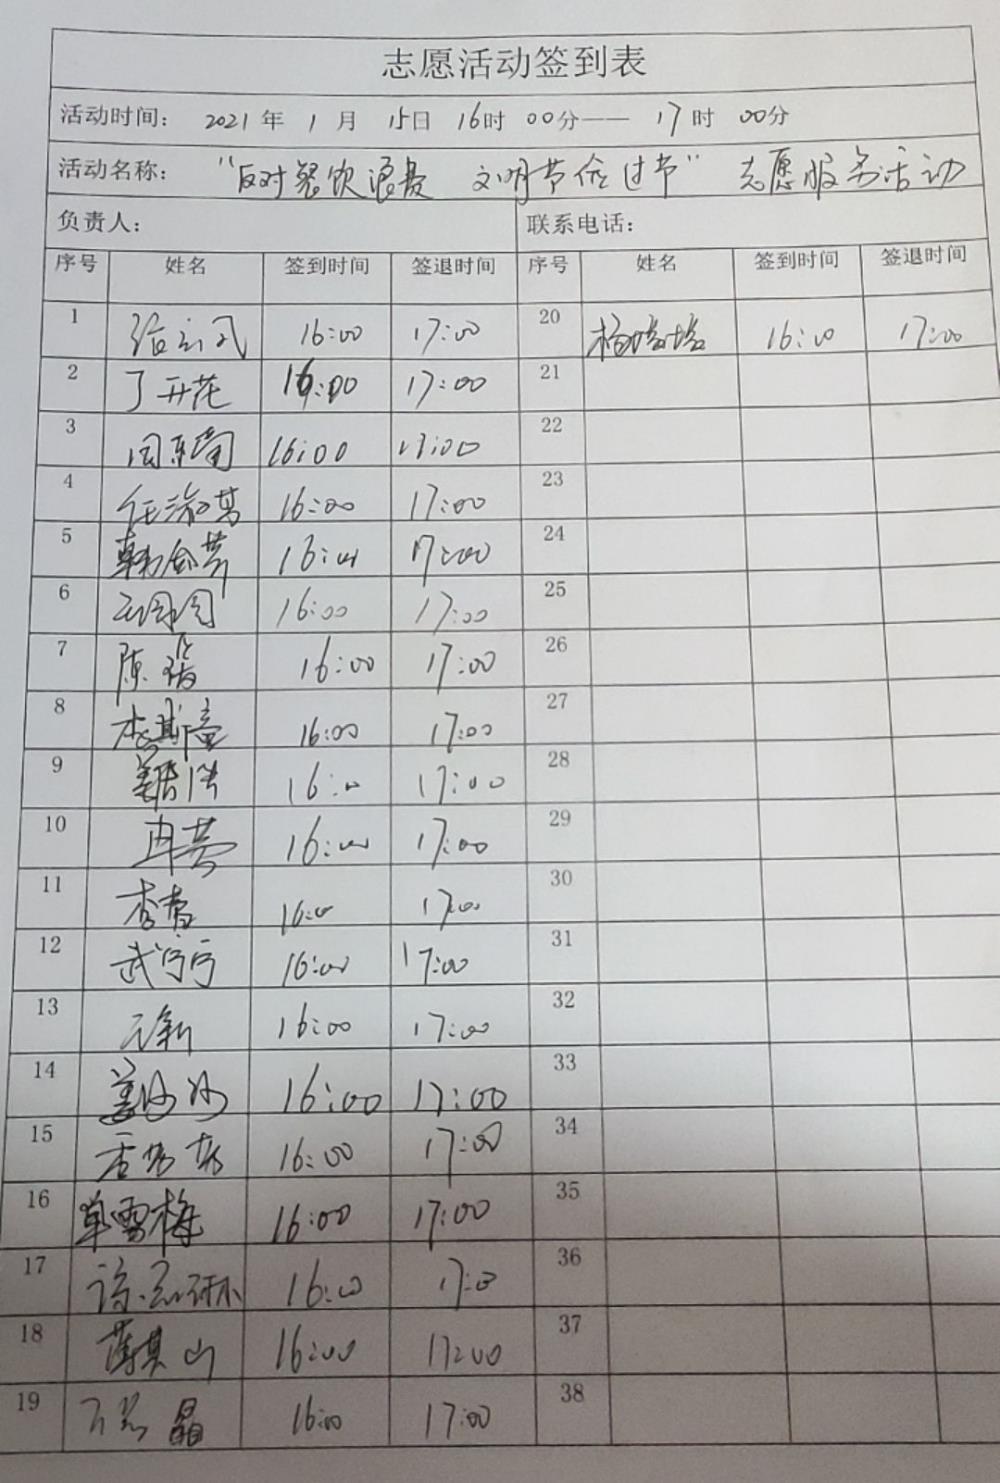 志愿活动签到表
活动时间： 2021 年 1 月 15日 16时 00分—— 17时 00分
活动名称： “反对餐饮浪费 文明节俭过节” 志愿服务活动
负责人： 联系电话：
序号 姓名 签到时间 签退时间 序号 姓名 签到时间 签退时间
1 16:00 17:00 20 杨培培 16:00 17:00
2 丁开花 16:00 17:00 21
3 周东南 16:00 17:00 22
4 任淑菊 16:00 17:00 23
5 韩金芳 16:00 17:00 24
6 16:00 17:00 25
7 陈 16:00 17:00 26
8 李斯童 16:00 17:00 27
9 16:00 17:00 28
10 冉芸 16:00 17:00 29
11 李青 16:00 17:00 30
12 武宁宁 16:00 17:00 31
13 元新 16:00 17:00 32
14 姜沙沙 16:00 17:00 33
15 16:00 17:00 34
16 单雪梅 16:00 17:00 35
17 16:00 17:00 36
18 薄其山 16:00 17:00 37
19 晶 16:00 17:00 38